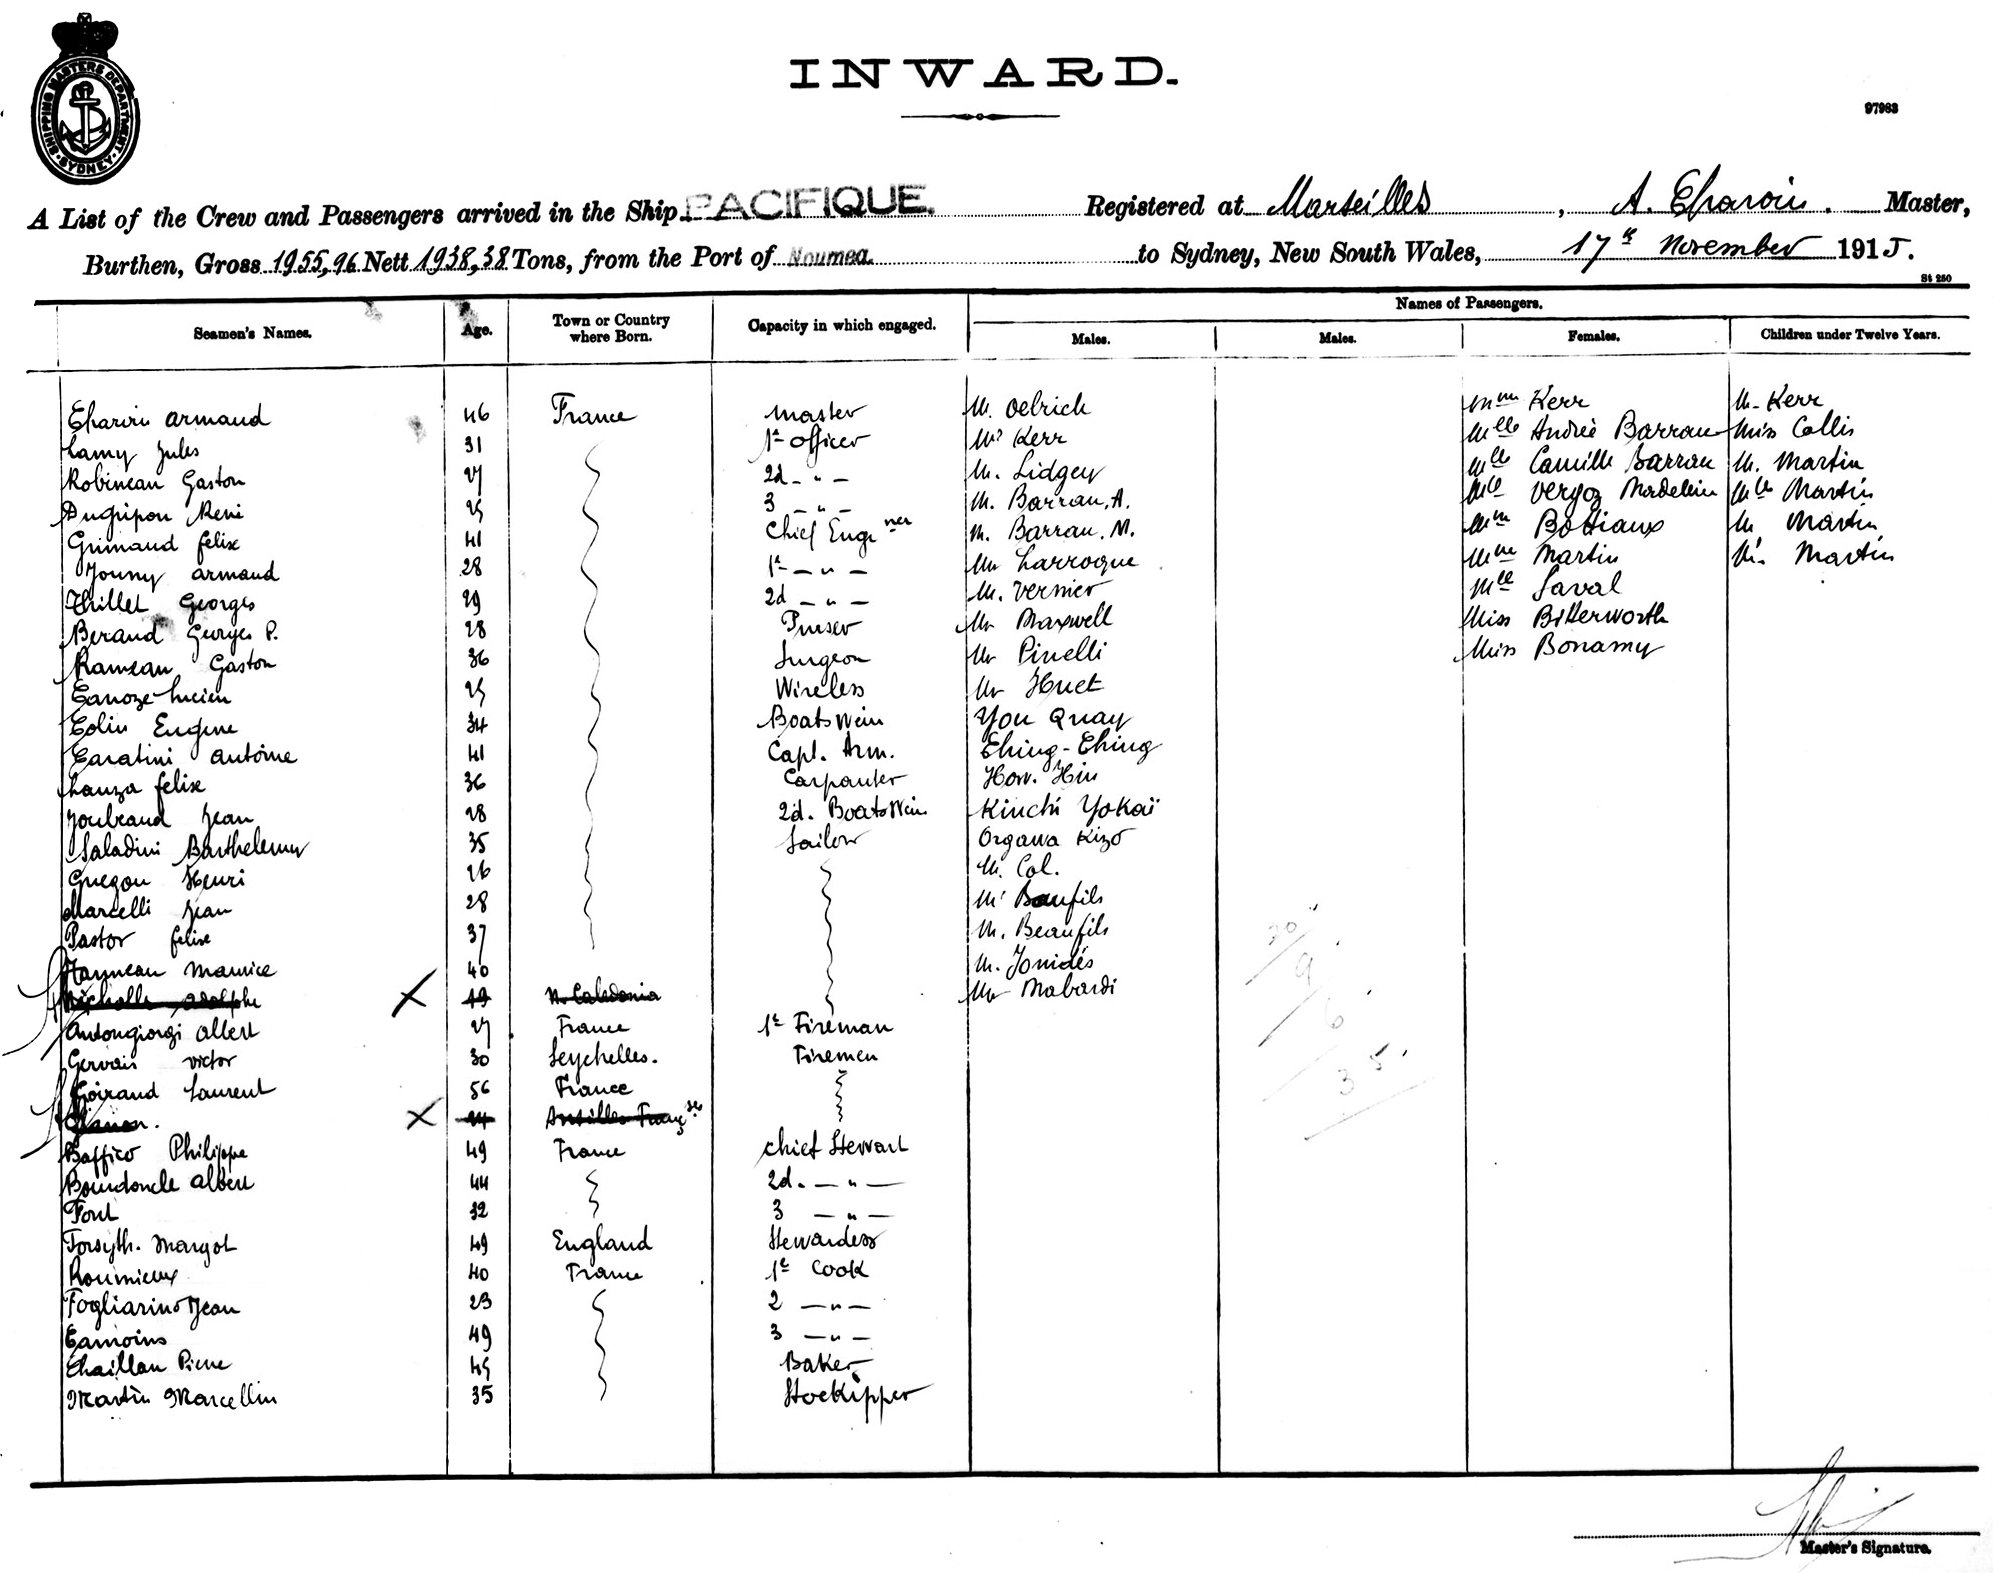 SHIPPING MASTERS DEPARTMENT
SYDNEY
INWARD.
97963
A List of the Crew and Passengers arrived in the Ship PACIFIQUE. Registered at Marseilles, A. Charvin. Master,
Burthen, Gross 1955,96 Nett 1938,38 Tons, from the Port of Noumea. to Sydney, New South Wales, 17th November 1915.
St 250
Seamen's Names. Age. Town or Country where Born. Capacity in which engaged. Names of Passengers.
Males. Males. Females. Children under Twelve Years.
Charvin armand 46 France master M. Oelrich Mme Kerr M. Kerr
Lamy Jules 31 1st officer Mr Kerr Mlle Andrée Barrau Miss Collis
Robineau Gaston 27 2d - " - M. Lidgey Mlle Camille Barrau M. Martin
Dugripon René 25 3 - " - M. Barrau. A. Mlle Vergoz Madeleine Mlle Martin
Grimaud felix 41 Chief Engener M. Barrau. M. Mme Bottiaux M. Martin
Jouny armand 28 1st - " - Mr Larroque Mme Martin M. Martin
Thillet Georges 29 2d - " - M. Vernier Mlle Laval
Beraud Georges P. 28 Purser Mr Maxwell Miss Bitterworth
Rameau Gaston 36 Surgeon Mr Pinelli Miss Bonamy
Canoze Lucien 25 Wireless Mr Huet
Colin Eugene 34 BoatsWein You Quay
Caratini antoine 41 Capt. Arm. Ching-Ching
Lanza felix 36 Carpenter How. Hin
Joubeaud Jean 28 2d. BoatsWein Kinchi Yokaï
Saladini Barthelemy 35 Sailor Orgawa Kizo
Guegou Henri 26 M. Col.
Marcelli Jean 28 Mr Baufils
Pastor felix 37 M. Beaufils
Hanneau Maurice 40 M. Jonidés
Nicholle adolphe 19 N. Caledonia Mr Mabardi
Antongiorgi albert 27 France 1st Fireman
Gervais victor 30 Seychelles. Firemen
Goirand Laurent 56 France
44 Antilles Françses
Baffico Philippe 49 France chief Stewart
Bourdoncle albert 44 2d. - " -
Font 32 3 - " -
Forsyth. Margot 49 England Stewardess
Roumieux 40 France 1st Cook
Fogliarino Jean 23 2 - " -
Camoins 49 3 - " -
Chaillan Pierre 45 Baker
Martin Marcellin 35 Stockipper
20
9
6
35
Master's Signature.